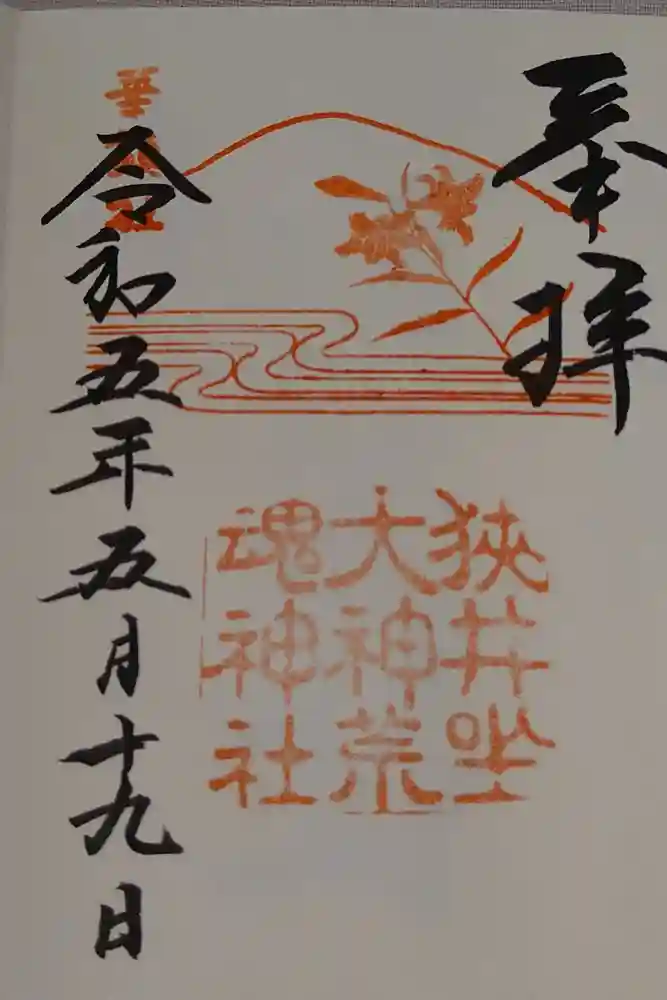 奉拝
狭井坐
大神荒
魂神社
華鎮社
令和五年五月十九日